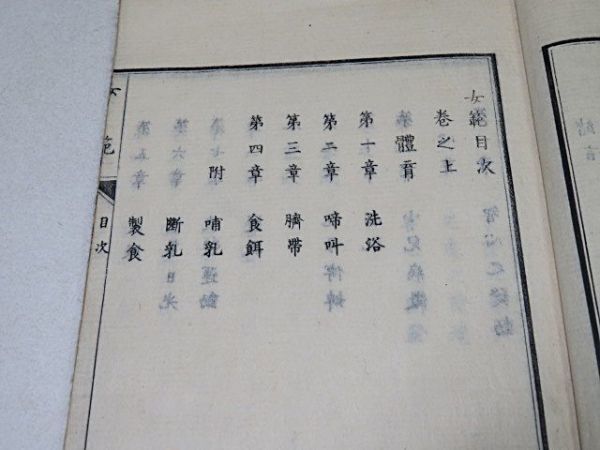 女範目次
卷之上
體育
第一章 洗浴
第二章 啼叫
第三章 臍帶
第四章 食餌
附 哺乳
断乳
製食
女範 目次